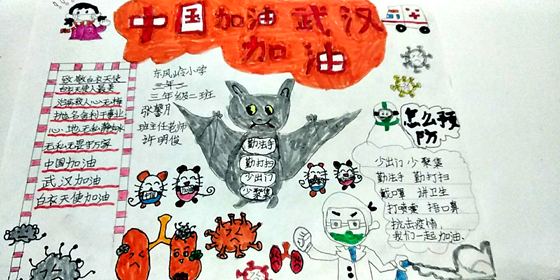 中国加油 武汉
加油
致敬白衣天使
白衣天使人最美
治病救人心无悔
心地无私
无私无畏
中国加油
武汉加油
白衣天使加油
东风岭小学
三年二
三年级二班
张馨月
班主任老师
许明俊
勤洗手
勤打扫
少出门
少聚集
怎么预防
少出门 少聚集
勤洗手 勤打扫
戴口罩 讲卫生
打喷嚏 捂口鼻
抗击疫情
我们一起加油.